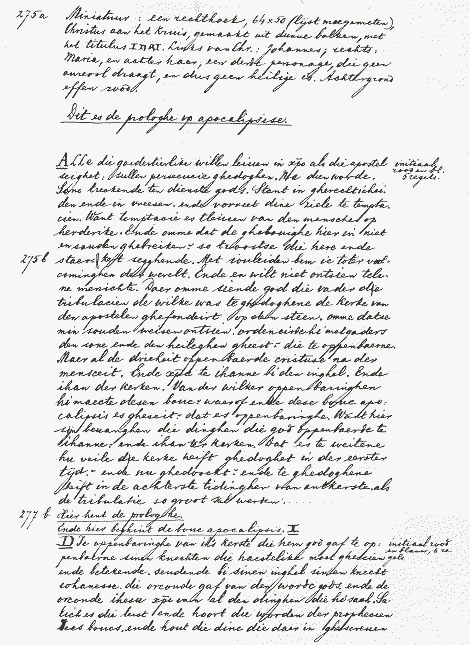 275a Miniatuur: een rechthoek, 64 x 50 (lijst meegemeten),
Christus aan het kruis, gemaakt uit dunne balken, met
het titulus INRI. Links van Chr.: Johannes; rechts:
Maria, en achter haar, een derde personage, die geen
aureool draagt, en dus geen heilige is. Achtergrond
effen rood.
Dit es de prologhe vp apocalipsise.
ALLe die goedertierlike willen leuen in xpo als die apostel
seighet: sullen persecucie ghedoghen. Na dien worde.
Sone treckende ten dienste gods. Stant in gherechtichei
den ende in vreesen. ende vorsiet dine ziele te tempta-
cien. Want temptacie es tleuen van den mensche op
herderike. Ende omme dat de ghelouighe hier in niet
en souden ghebreken: so troostse die here ende
275b staerckse segghende. Met jou leden ben ic toter vol-
cominghen der werelt. Ende en wilt niet ontsien cleine
menichte. Daer omme siende god die vader die
tribulacien de wilke was te ghedoghene de kerke van
den apostelen ghefondeirt op den steen. omme datse
min souden ontsien. ordeneirde
den sone ende den heileghen gheest: die te oppenbaerne.
Maer al de drieheit oppenbaerde cristuse na der
menscheit. Ende xpc te ihanne bi den inghel. Ende
ihan der kerken. Van der wilker oppenbaringhen
hi maecte desen bouc: waerof ende dese bouc apo-
calipsis es gheseit: dat es oppenbaringhe. Want hier
sijn die dinghen die god oppenbaerde te
ihanne: ende ihan ter kerken. Dat es te weitene
hu veile die kerke heift ghedoghet in der eerster
tijd: ende nu ghedoocht: ende te ghedoghene
heift in de achterste tidinghen van antkerste. als
de tribulatie so groot sal werden.
initiaal,
rood en bl.
5 regels.
277b Hier hent de prologhe
Ende hier beghint de bouc apocalipsis. I
DJe oppenbaringhe van ihs kerste die hem god gaf te op-
penbaerne sinen knechten die haestelike moet ghescien
ende betekende. sendende bi sinen inghel sinen knecht
iohanesse. die orconde gaf van den worde gods ende de
orconde ihesus xpc van al den dinghen die hi sach. Sa-
lich es die leest ende hoort die worden der prophecien
des boucs. ende hout die dinc die daer in ghescreuen
initiaal rood
en blauw, 6 re-
gels